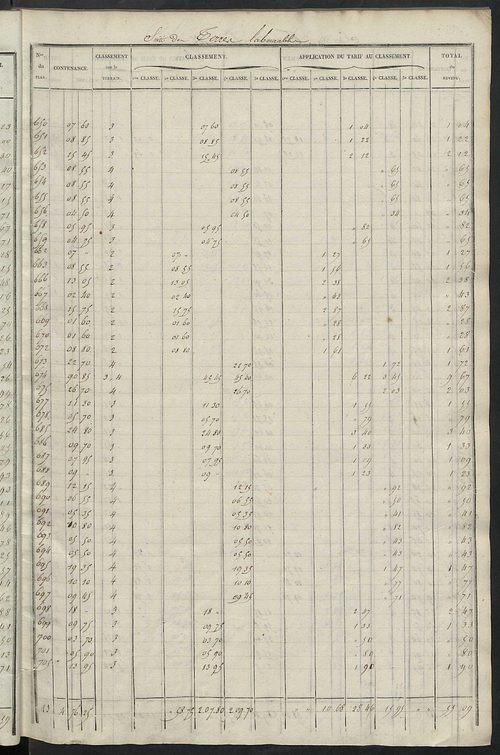 Suite des Terres labourables
Nos du PLAN. CONTENANCE. CLASSEMENT sur le TERRAIN. CLASSEMENT. APPLICATION DU TARIF AU CLASSEMENT. TOTAL du REVENU.
1re CLASSE. 2e CLASSE. 3e CLASSE. 4e CLASSE. 5e CLASSE. 1re CLASSE. 2e CLASSE. 3e CLASSE. 4e CLASSE. 5e CLASSE.
650 07 60 3 07 60 1 04 1 04
651 08 85 3 08 85 1 22 1 22
652 15 45 3 15,45 2 12 2 12
653 08 55 4 08 55 " 65 " 65
654 08 55 4 08 55 " 65 " 65
655 08 55 4 08 55 " 65 " 65
656 04 50 4 04 50 " 34 " 34
658 05 95 3 05 95 " 82 " 82
659 04 75 3 04 75 " 65 " 65
662 07 - 2 07 - 1 27 1 27
663 08 55 2 08 55 1 56 1 56
666 13 05 2 13 05 2 38 2 38
667 02 40 2 02 40 " 43 " 43
668 15 75 2 15 75 2 87 2 87
669 01 60 2 01 60 " 28 " 28
670 01 60 2 01 60 " 28 " 28
672 08 80 2 08 80 1 61 1 61
673 22 70 4 22 70 1 72 1 72
674 90 85 3.4 45 45 45 40 6 22 3 45 9 67
675 26 70 4 26 70 2 03 2 03
677 11 30 3 11 30 1 55 1 55
678 05 70 3 05 70 " 79 " 79
685 24 80 3 24 80 3 40 3 40
686 09 70 3 09 70 1 33 1 33
687 07 95 3 07 95 1 09 1 09
688 09 - 3 09 - 1 23 1 23
689 12 15 4 12 15 " 92 " 92
690 06 55 4 06 55 " 50 " 50
691 05 35 4 05 35 " 41 " 41
692 10 80 4 10 80 " 82 " 82
693 05 50 4 05 50 " 43 " 43
694 05 50 4 05 50 " 43 " 43
695 19 35 4 19 35 1 47 1 47
696 10 10 4 10 10 " 77 " 77
697 09 45 4 09 45 " 71 " 71
698 18 - 3 18 - 2 47 2 47
699 09 75 3 09 75 1 33 1 33
700 03 70 3 03 70 " 50 " 50
701 05 90 3 05 90 " 80 " 80
705 13 95 3 13 95 1 90 1 90
43 4 76 25 " 58 75 2 07 80 2 09 70 " " 10 68 28 46 15 95 " " 55 09